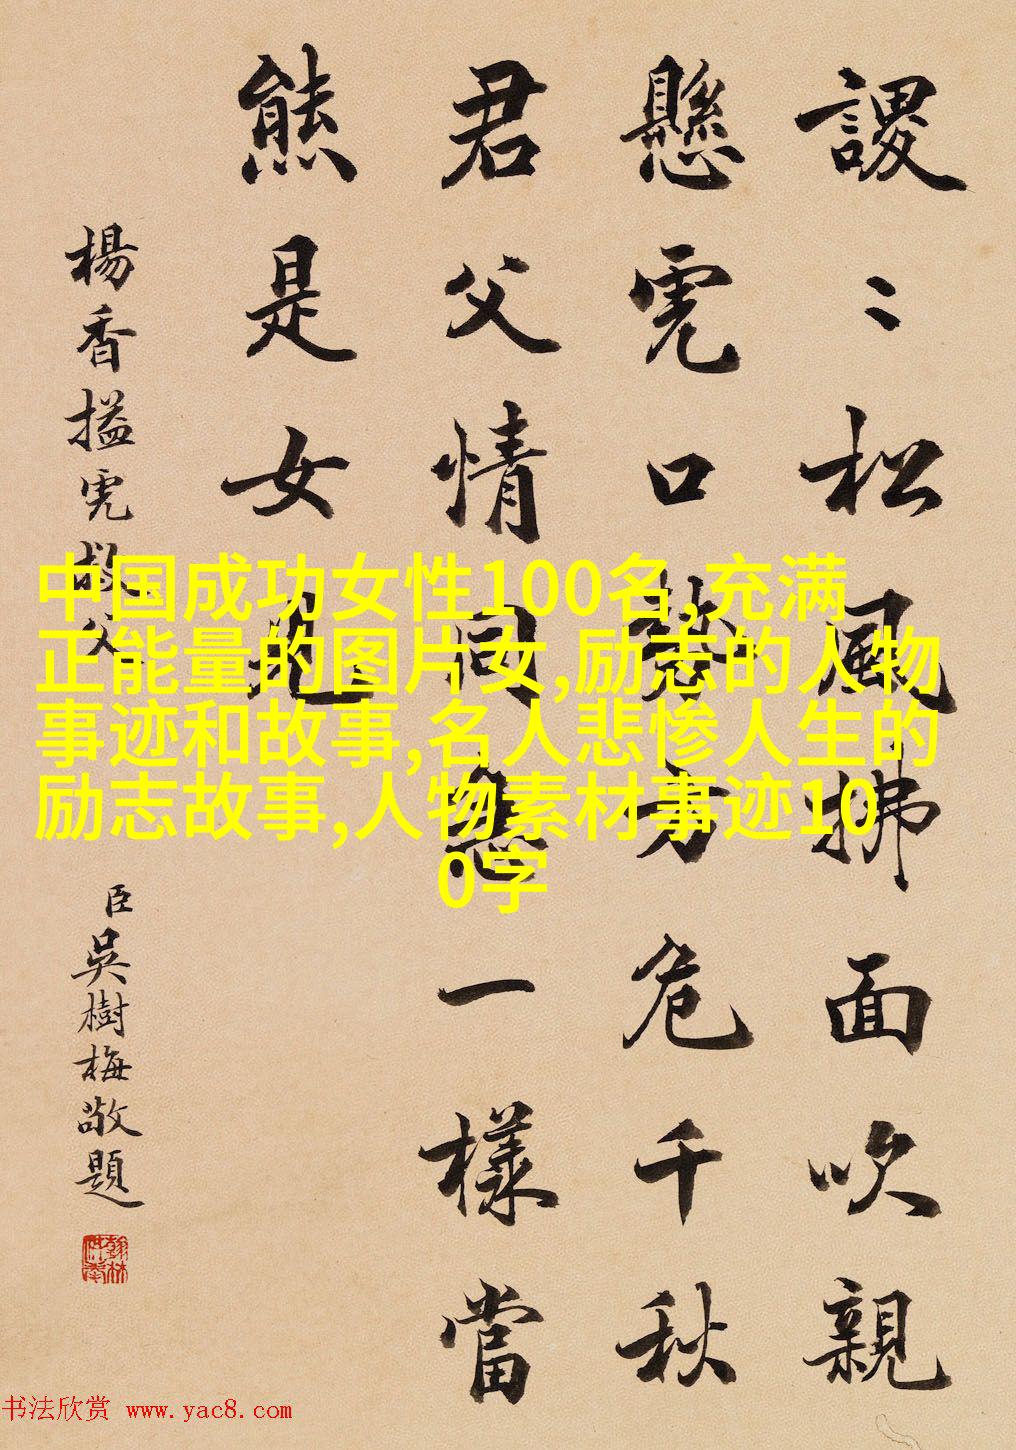 謖〻松風拂面吹親
懸虎口勢方危千秋
君父情同急一樣當
熊是女兒
楊香搤虎救父
臣吳樹梅敬題
中国成功女性100名,充满
正能量的图片女,励志的人物
事迹和故事,名人悲惨人生的
励志故事,人物素材事迹10
0字
书法欣赏 www.yac8.com